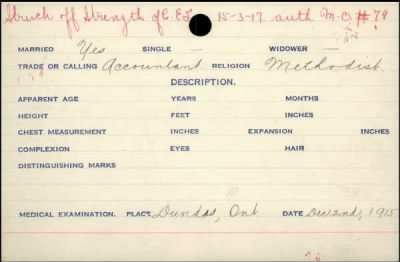 Struck off Strength of C.E.F. 15-3-17. auth M.O. #79
MARRIED Yes SINGLE — WIDOWER —
TRADE OR CALLING Accountant RELIGION Methodist.
DESCRIPTION.
APPARENT AGE YEARS MONTHS
HEIGHT FEET INCHES
CHEST MEASUREMENT INCHES EXPANSION INCHES
COMPLEXION EYES HAIR
DISTINGUISHING MARKS
MEDICAL EXAMINATION. PLACE Dundas, Ont. DATE Dec 2nd, 1915